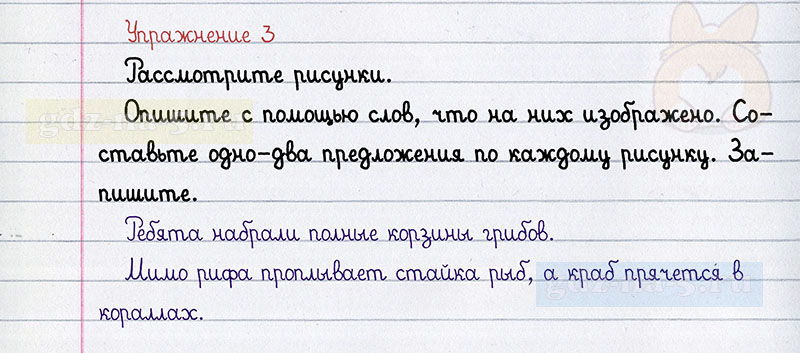 Упражнение 3
Рассмотрите рисунки.
Опишите с помощью слов, что на них изображено. Со-
ставьте одно-два предложения по каждому рисунку. За-
пишите.
Ребята набрали полные корзины грибов.
Мимо рифа проплывает стайка рыб, а краб прячется в
кораллах.